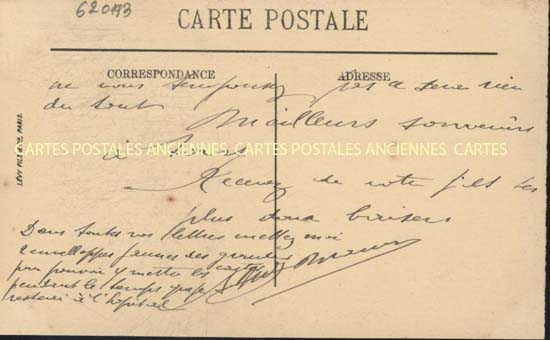 620173
CARTE POSTALE
CORRESPONDANCE
ADRESSE
ne vous pas a rien
du tout Meilleurs souvenirs
CARTES POSTALES ANCIENNES CARTES POSTALES ANCIENNES CARTES
à tous
Recevez de votre fils les
plus doux baisers
Dans toutes vos lettres mettez moi
2 enveloppes des grandes
pour pouvoir y mettre les cartes
pendant le temps que je
resterai à l'hôpital
LÉVY FILS & Cie, PARIS